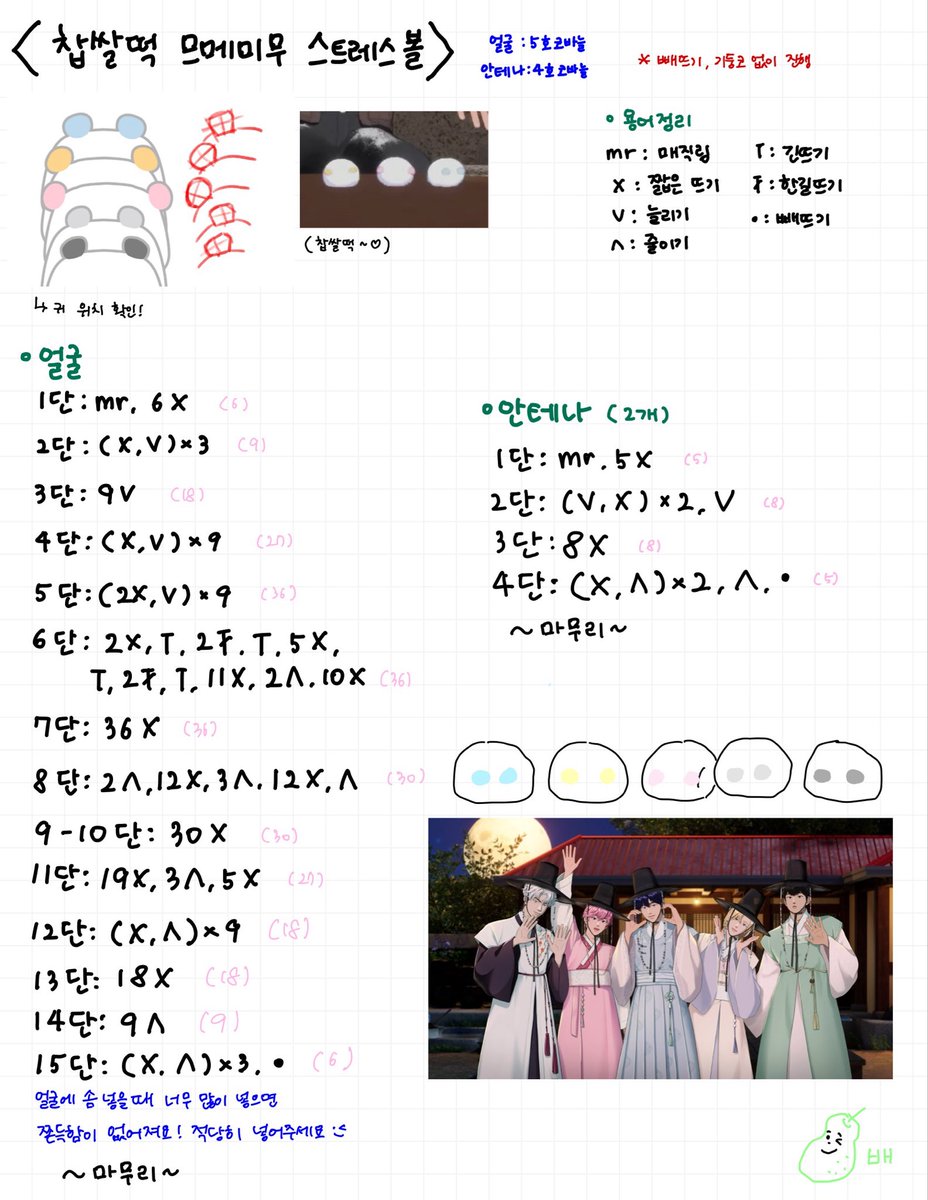 <찹쌀떡 므메미무 스트레스볼>
얼굴 : 5호 코바늘
안테나 : 4호 코바늘
* 빼뜨기, 기둥코 없이 진행
(찹쌀떡~♡)
↳ 귀 위치 확인!
• 용어정리
mr : 매직링
X : 짧은 뜨기
V : 늘리기
Λ : 줄이기
T : 긴뜨기
Ŧ : 한길뜨기
• : 빼뜨기
• 얼굴
1단 : mr, 6X (6)
2단 : (X, V)×3 (9)
3단 : 9V (18)
4단 : (X, V)×9 (27)
5단 : (2X, V)×9 (36)
6단 : 2X, T, 2Ŧ, T, 5X,
T, 2Ŧ, T, 11X, 2Λ, 10X (36)
7단 : 36X (36)
8단 : 2Λ, 12X, 3Λ, 12X, Λ (30)
9-10단 : 30X (30)
11단 : 19X, 3Λ, 5X (27)
12단 : (X, Λ)×9 (18)
13단 : 18X (18)
14단 : 9Λ (9)
15단 : (X, Λ)×3, • (6)
얼굴에 솜 넣을때 너무 많이 넣으면
쫀득함이 없어져요! 적당히 넣어주세요 :)
~마무리~
• 안테나 (2개)
1단 : mr. 5X (5)
2단 : (V, X)×2, V (8)
3단 : 8X (8)
4단 : (X, Λ)×2, Λ, • (5)
~마무리~
배